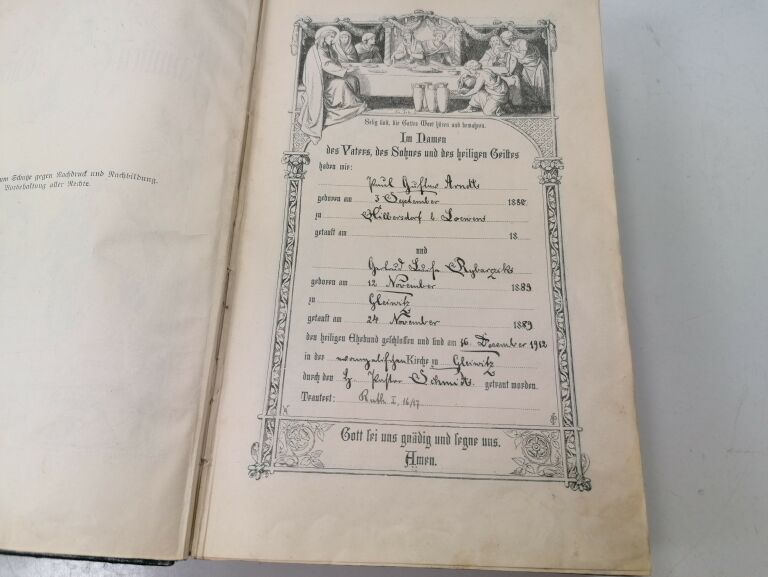 zum Schutze gegen Nachdruck und Nachbildung.
Vorbehaltung aller Rechte.
Selig sind, die Gottes Wort hören und bewahren.
Im Namen
des Vaters, des Sohnes und des heiligen Geistes
haben wir:
Paul Gustav Arndt
geboren am 3 September 1882
zu Hilbersdorf b. Loewen
getauft am 18
und
Gertrud Luise Rybarzik
geboren am 12 November 1889
zu Gleiwitz
getauft am 24 November 1889
den heiligen Ehebund geschlossen und sind am 16. Dezember 1912
in der evangelischen Kirche zu Gleiwitz
durch den H. Pastor Schmidt getraut worden.
Trautext: Ruth I, 16/17
Gott sei uns gnädig und segne uns.
Amen.